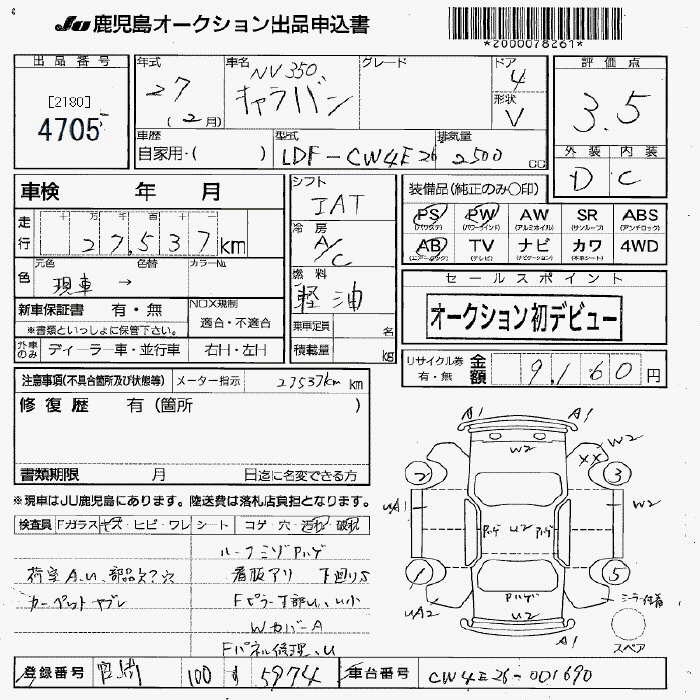 JU 鹿児島オークション出品申込書
*2000078261*
出品番号
[2180]
4705
年式
27
(2月)
車名
NV350
キャラバン
グレード
ドア
4
形状
V
評価点
3.5
外装 内装
D C
車歴
自家用・( )
型式
LDF-CW4E26
排気量
2500 CC
車検 年 月
走行
十 万 千 百 十 一
27,537 km
元色 色替 カラーNo.
色
現車 →
新車保証書 有・無
※書類といっしょに保管下さい。
NOX規制
適合・不適合
外車のみ ディーラー車・並行車 右H・左H
シフト
IAT
冷房
A/C
燃料
軽油
乗車定員 名
積載量 kg
装備品(純正のみ○印)
PS PW AW SR ABS
(パワステ) (パワーウインド) (アルミホイル) (サンルーフ) (アンチロック)
AB TV ナビ カワ 4WD
(エアーバック) (テレビ) (ナビゲーション) (本革シート)
セールスポイント
オークション初デビュー
リサイクル券
有・無
金額
9,160 円
注意事項(不具合箇所及び状態等)
メーター指示
27537km km
修復歴 有(箇所 )
書類期限 月 日迄に名変できる方
※現車はJU鹿児島にあります。陸送費は落札店負担となります。
検査員 Fガラス キズ・ヒビ・ワレ シート コゲ・穴・汚れ・破れ
ルーフミゾアルゲ
荷室A.U、部品欠?穴
看板アリ 下廻りS
カーペットヤブレ
Fピラー下部U、U小
WカバーA
Fパネル修理、U
A1 A1
W2 W2
XX
2 3
UA1 W2
アルゲ U2 アルゲ
1 5
UA2
アルゲ
U2
ミラー付着
A1
スペア
登録番号
宮崎 100 す 5974
車台番号
CW4E26-001690